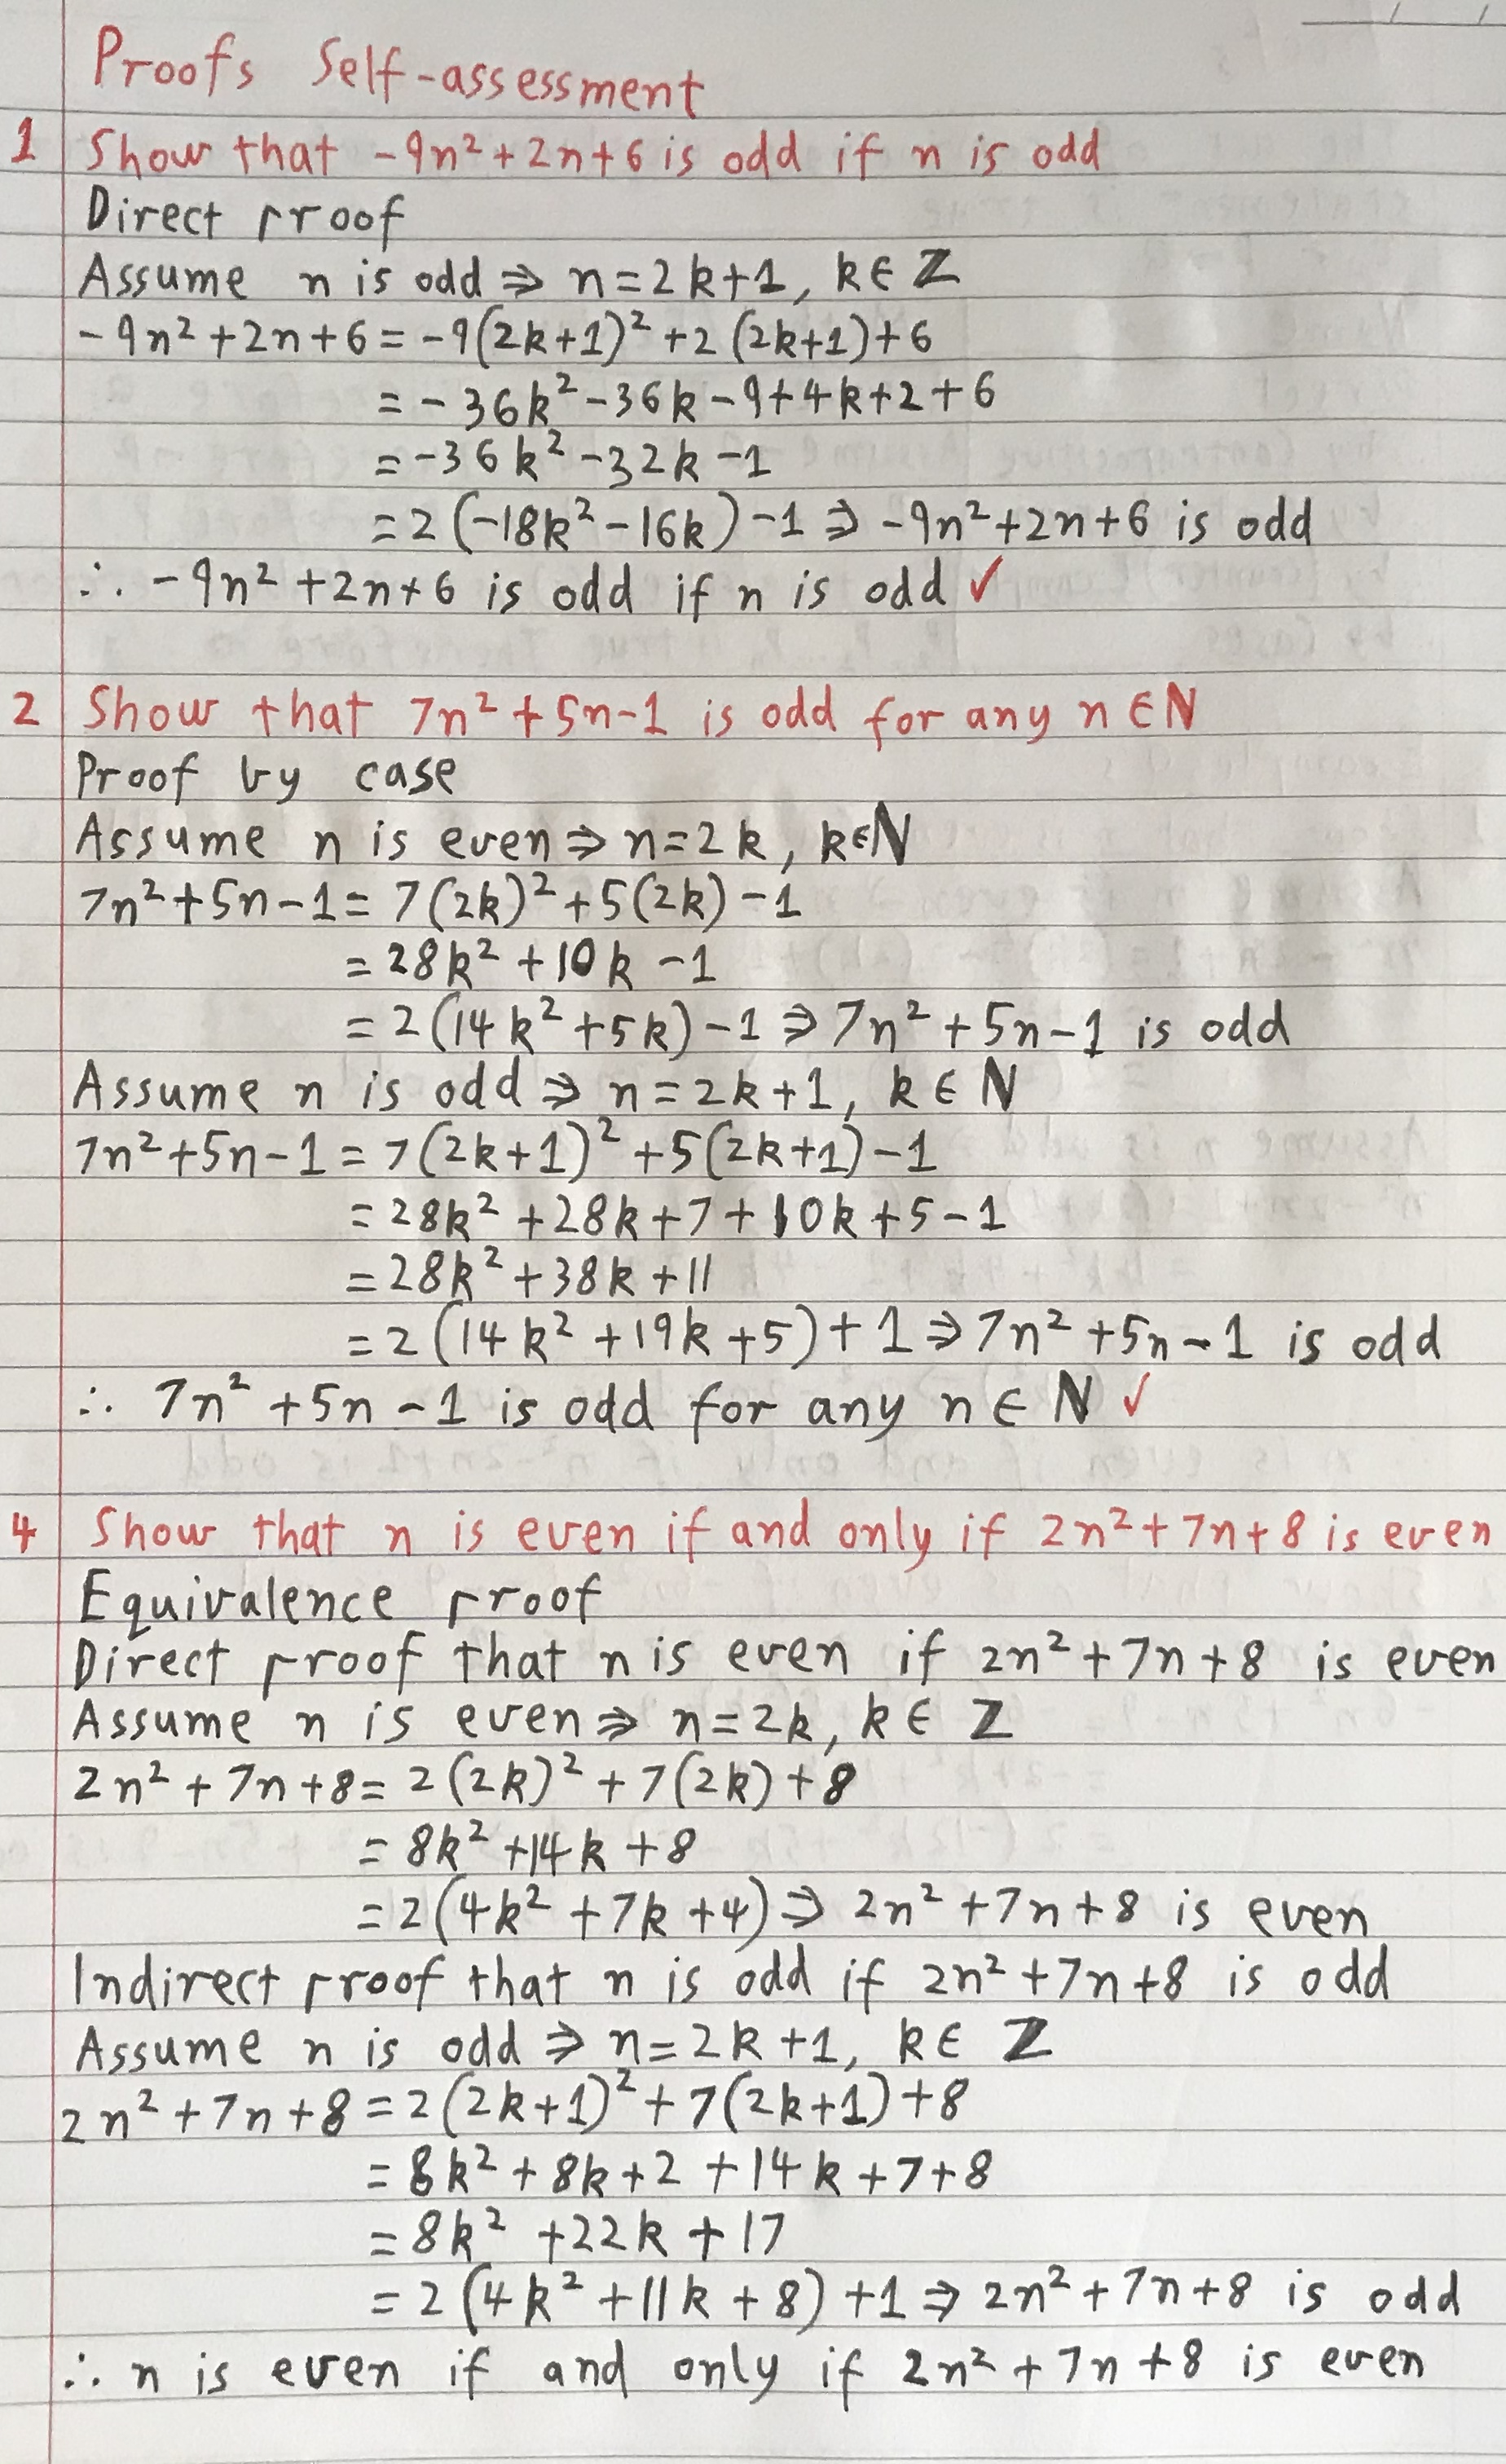 Proofs Self-assessment
1 Show that -9n²+2n+6 is odd if n is odd
Direct proof
Assume n is odd ⇒ n=2k+1, k∈ℤ
-9n²+2n+6 = -9(2k+1)²+2(2k+1)+6
= -36k²-36k-9+4k+2+6
= -36k²-32k-1
= 2(-18k²-16k)-1 ⇒ -9n²+2n+6 is odd
∴ -9n²+2n+6 is odd if n is odd ✓
2 Show that 7n²+5n-1 is odd for any n∈ℕ
Proof by case
Assume n is even ⇒ n=2k, k∈ℕ
7n²+5n-1 = 7(2k)²+5(2k)-1
= 28k²+10k-1
= 2(14k²+5k)-1 ⇒ 7n²+5n-1 is odd
Assume n is odd ⇒ n=2k+1, k∈ℕ
7n²+5n-1 = 7(2k+1)²+5(2k+1)-1
= 28k²+28k+7+10k+5-1
= 28k²+38k+11
= 2(14k²+19k+5)+1 ⇒ 7n²+5n-1 is odd
∴ 7n²+5n-1 is odd for any n∈ℕ ✓
4 Show that n is even if and only if 2n²+7n+8 is even
Equivalence proof
Direct proof that n is even if 2n²+7n+8 is even
Assume n is even ⇒ n=2k, k∈ℤ
2n²+7n+8 = 2(2k)²+7(2k)+8
= 8k²+14k+8
= 2(4k²+7k+4) ⇒ 2n²+7n+8 is even
Indirect proof that n is odd if 2n²+7n+8 is odd
Assume n is odd ⇒ n=2k+1, k∈ℤ
2n²+7n+8 = 2(2k+1)²+7(2k+1)+8
= 8k²+8k+2+14k+7+8
= 8k²+22k+17
= 2(4k²+11k+8)+1 ⇒ 2n²+7n+8 is odd
∴ n is even if and only if 2n²+7n+8 is even